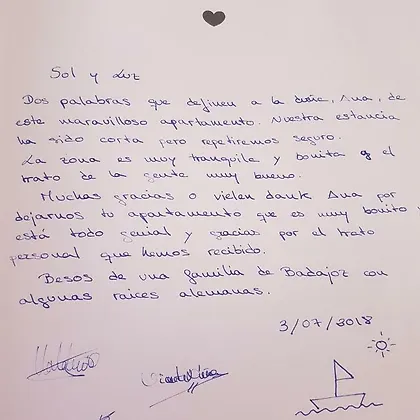 Sol y Luz
Dos palabras que definen a la dueña, Ana, de
este maravilloso apartamento. Nuestra estancia
ha sido corta pero repetiremos seguro.
La zona es muy tranquila y bonita y el
trato de la gente muy bueno.
Muchas gracias o vielen dank Ana por
dejarnos tu apartamento que es muy bonito
está todo genial y gracias por el trato
personal que hemos recibido.
Besos de una familia de Badajoz con
algunas raices alemanas.
3/07/2018